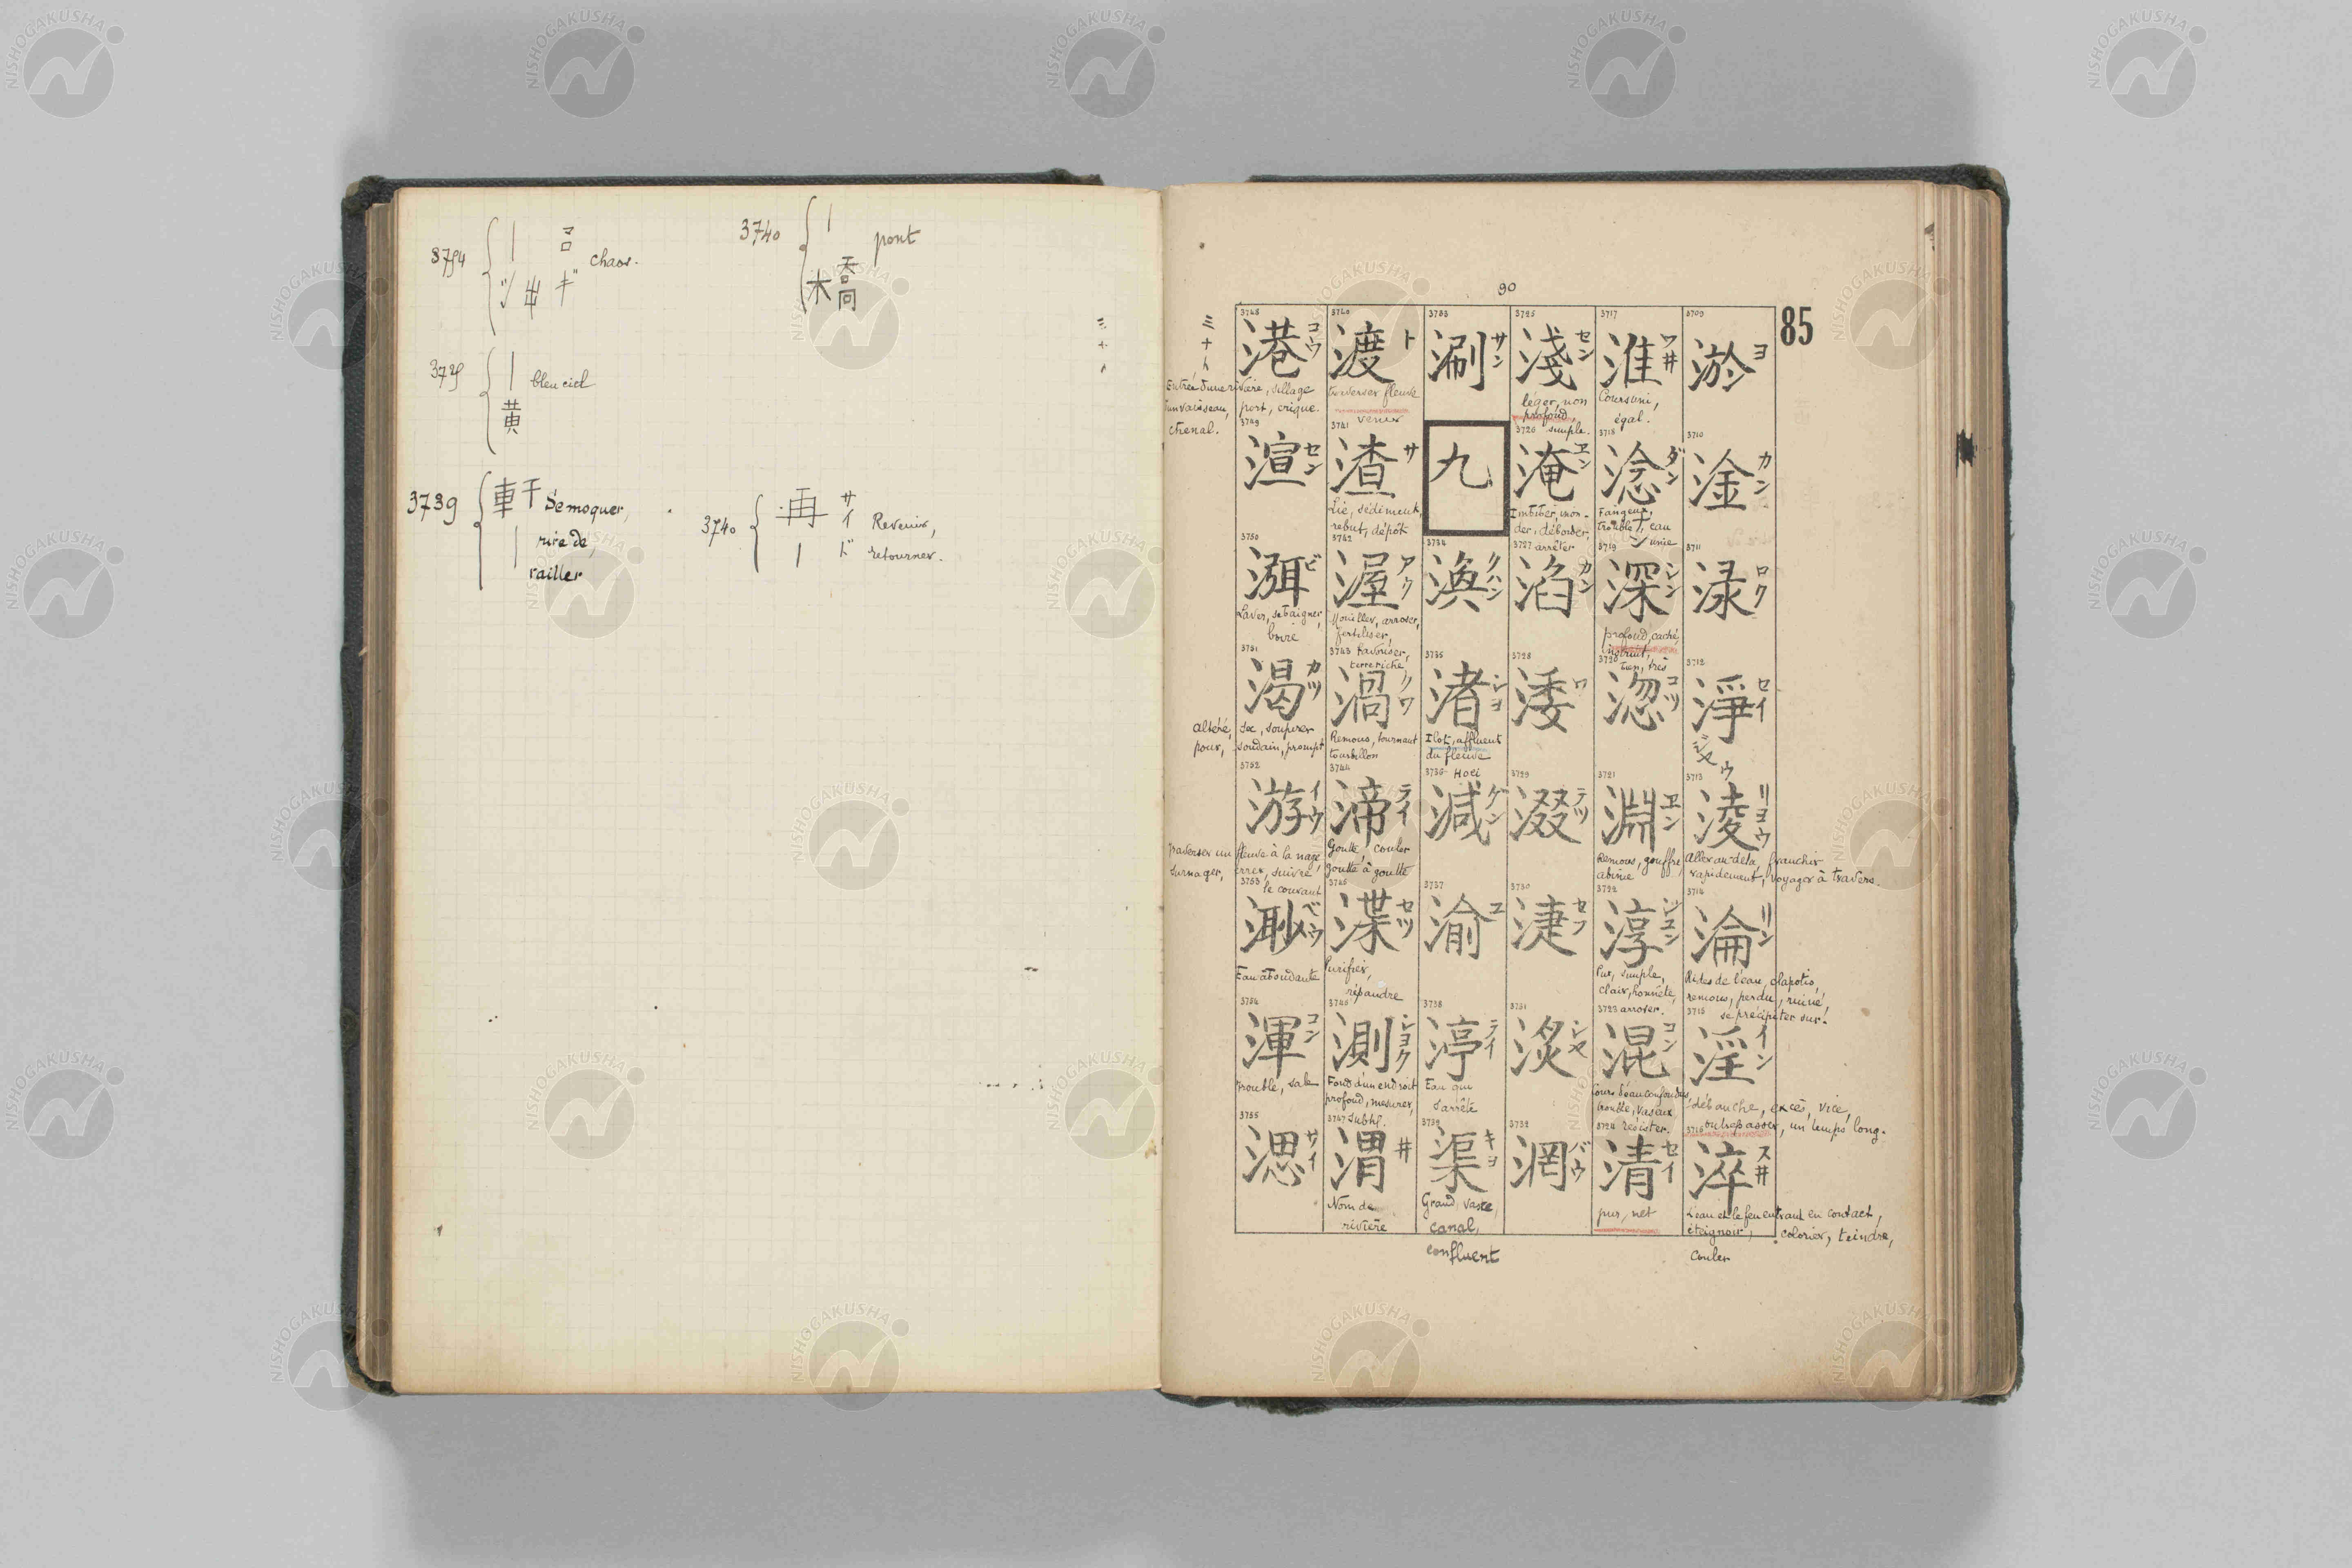 3754
コ
ロ
chaos.
3729
bleu ciel
黄
3739
車 干 Se moquer,
rire de,
railler
3740
pont
木 喬
3740
再 サイ Revenir,
ド retourner.
三十
90
85
3709
淤 ヨ
3710
淦 カン
3711
淥 ロク
3712
淨 セイ
ジヤウ
3713
淩 リヨウ
Aller au-delà, franchir
rapidement, voyager à travers.
3714
淪 リン
Rides de l'eau, clapotis,
remous, perdu, ruiné,
se précipiter sur.
3715
淫 イン
débauche, excès, vice,
outrepasser, un temps long.
3716
淬 スヰ
L'eau et le feu entrant en contact,
éteignoir, colorier, teindre,
couler
3717
淮 ワヰ
Cours uni,
égal.
3718
淰 ダン
Fangeux,
trouble, eau
unie
3719
深 シン
profond, caché,
instruit,
très
3720
淴 コツ
3721
淵 ヱン
Remous, gouffre
abîme
3722
淳 ジユン
Pur, simple,
clair, honnête,
arroser.
3723
混 コン
Cours d'eau confondus,
trouble, vaseux
résister.
3724
清 セイ
pur, net
3725
淺 セン
léger, non
profond,
simple.
3726
淹 ヱン
Imbiber, inon-
der, déborder,
arrêter
3727
淊 カン
3728
涹 ワ
3729
涰 テツ
3730
淁 セフ
3731
湥 シヤ
3732
涸 バウ
3733
涮 サン
九
3734
渙 クハン
3735
渚 シヨ
Ilot, affluent
du fleuve
Hoei
3736
減 ゲン
3737
渝 ユ
3738
渟 テイ
Eau qui
s'arrête
3739
渠 キヨ
Grand, vaste,
canal,
confluent
3740
渡 ト
traverser fleuve
venir
3741
渣 サ
Lie, sédiment,
rebut, dépôt
3742
渥 アク
Mouiller, arroser,
fertiliser,
favoriser,
terre riche
3743
渦 クワ
Remous, tournant
tourbillon
3744
渧 テイ
Goutte, couler
goutte à goutte
3745
渫 セツ
Purifier,
répandre
3746
測 シヨク
Fond d'un endroit
profond, mesurer,
subtil.
3747
渭 ヰ
Nom de
rivière
3748
港 コウ
Entrée d'une rivière, sillage
d'un vaisseau, port, crique.
chenal.
3749
渲 セン
3750
渳 ビ
Laver, se baigner,
boire
3751
渴 カツ
altéré, sec, soupirer
pour, soudain, prompt
3752
游 イウ
Traverser un fleuve à la nage,
surnager, errer, suivre
le courant
3753
渺 ベウ
Eau abondante
3754
渾 コン
Trouble, sale
3755
㴓 サイ